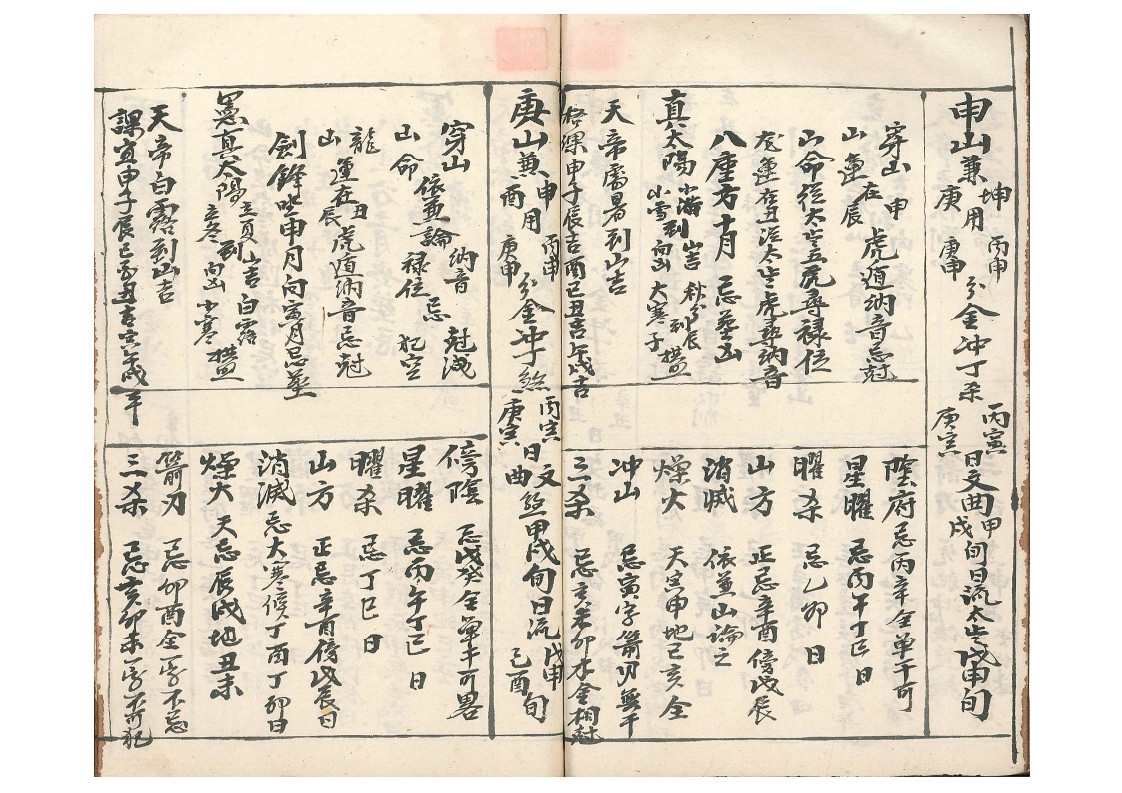 申山兼坤庚用丙申庚申分金冲丁柔丙寅庚寅日文曲甲戌旬日流太岁戊申旬
穿山申
山運在辰
虎遁納音忌尅
山命從太岁五虎尋祿位
龙運在丑從太岁虎尋納音
八座方十月 忌葬山
真太陽小滿到山吉 秋分辰到横
小雪到向吉 大寒子
天帝處暑到山吉
格课申子辰吉酉巳丑吉午戌吉
陰府 忌丙辛全单干可
星曜 忌丙午丁巳日
曜杀 忌乙卯日
山方 正忌辛酉傍戊辰
消滅 依兼山論之
燥火 天寅申地巳亥全
冲山 忌寅字箭刃無干
三杀 忌亥未卯水金相尅
庚山兼申酉用丙申庚申分金冲子煞丙寅庚寅日文曲煞甲戌旬日流戊申己酉旬
穿山 納音 尅減
山命 依兼論 祿位忌犯空
龍山運在丑辰虎遁納音忌尅
劍鋒 申月向寅月忌葬
真太陽立夏到山吉 白露
立冬到向吉 小寒
天帝白露到山吉
課宜申子辰巳酉丑吉寅午戌平
傍陰 忌戊癸全单干可畧
星曜 忌丙午丁巳日
曜杀 忌丁巳日
山方 正忌辛酉傍戊辰日
消滅 忌大寒候丁酉丁卯日
燥火 天忌辰戌地丑未
箭刃 忌卯酉全一字不忌
三杀 忌亥卯未一字不可犯